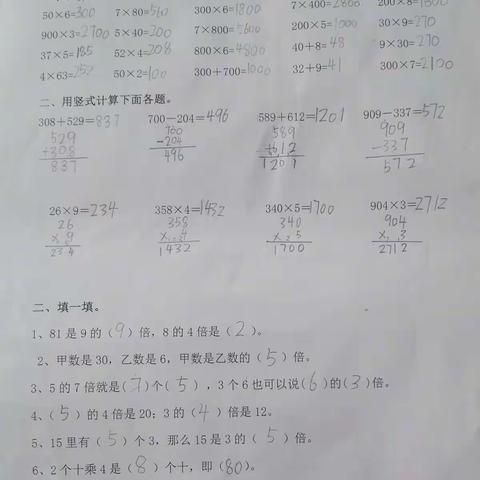 50×6=300 7×80=560 300×6=1800 7×400=2800 200×8=1600
900×3=2700 5×40=200 7×800=5600 200×5=1000 30×9=270
37×5=185 52×4=208 800×6=4800 40+8=48 9×30=270
4×63=252 50×2=100 300+700=1000 32+9=41 300×7=2100
二、用竖式计算下面各题。
308+529=837 700-204=496 589+612=1201 909-337=572
529 700 589 909
+308 -204 +612 -337
837 496 1201 572
26×9=234 358×4=1432 340×5=1700 904×3=2712
26 358 340 904
×9 ×4 ×5 ×3
234 1432 1700 2712
二、填一填。
1、81是9的(9)倍，8的4倍是(2)。
2、甲数是30，乙数是6，甲数是乙数的(5)倍。
3、5的7倍就是(7)个(5)，3个6也可以说(6)的(3)倍。
4、(5)的4倍是20；3的(4)倍是12。
5、15里有(5)个3，那么15是3的(5)倍。
6、2个十乘4是(8)个十，即(80)。